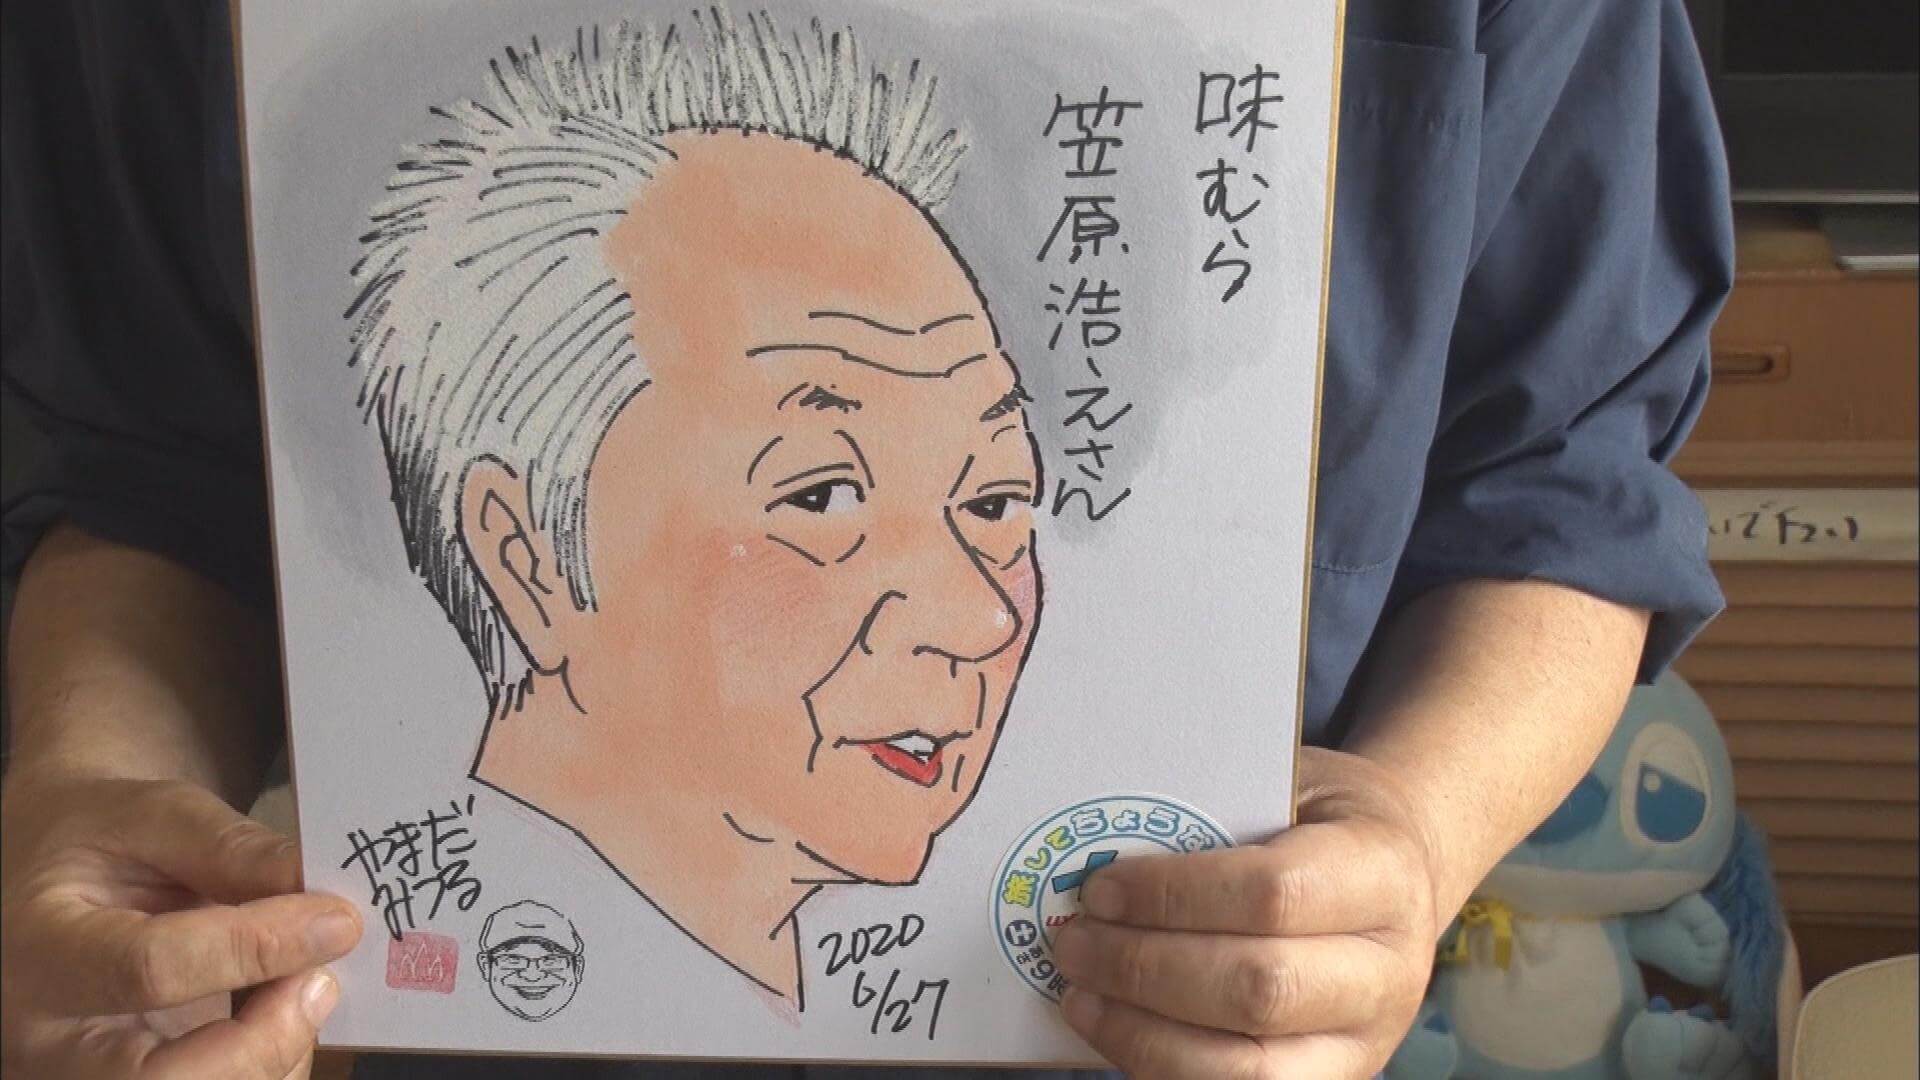 味むら
笠原浩、えさん
やまだ
みつる
2020
6/27
旅してちょうだ